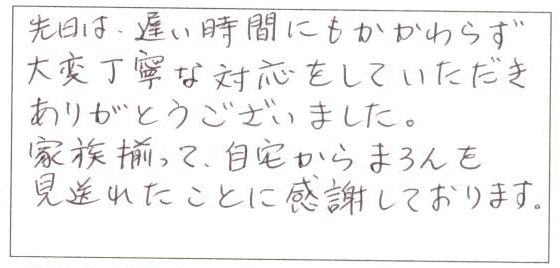 先日は、遅い時間にもかかわらず
大変丁寧な対応をしていただき
ありがとうございました。
家族揃って、自宅からまろんを
見送れたことに感謝しております。